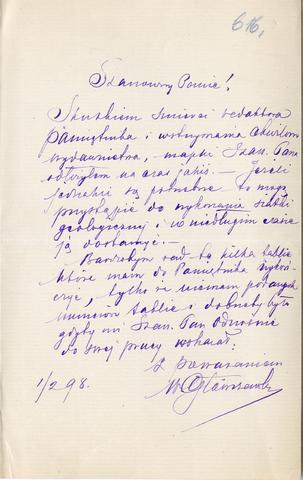 616,
Szanowny Panie!
Skutkiem śmierci redaktora
Pamiętnika i wstrzymania chwilow.
wydawnictwa, mapki Szan. Pana
odłożyłem na czas jakiś. — Jeżeli
jednakże są potrzebne to mogę
przystąpić do wykonania szatki
geologicznej i w niedługim czasie
ją dostarczyć. —
Bardzobym rad był kilka tablic
które mam do Pamiętnika wykoń-
czyć, tylko że nie mam podanych
numerów tablic i dobrze by było
gdyby mi Szan. Pan odnośnie
do swej pracy wskazał.
Z poważaniem
1/2 98.